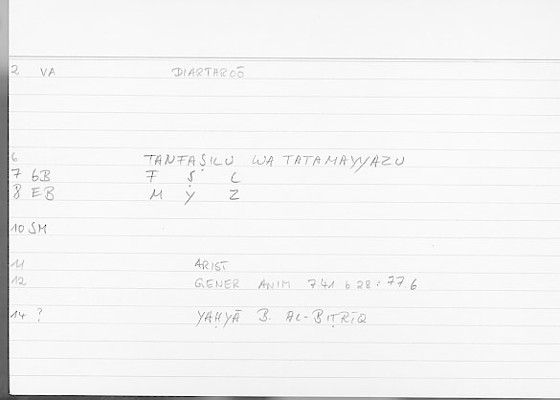 2 VA DIARTAROŌ
6 TANFAṢILU WA TATAMAYYAZU
7 6B F Ṣ L
8 EB M Y Z
10 SM
11 ARIST
12 GENER ANIM 741 b 28: 77.6
14 ? YAḤYĀ B. AL-BIṬRĪQ